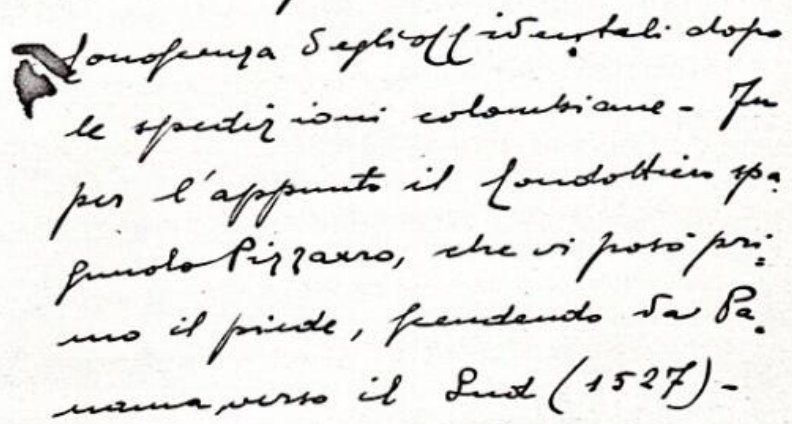 conoscenza degli occidentali dopo
le spedizioni colombiane - Fu
per l'appunto il condottiero spa=
gnuolo Pizzarro, che vi posò pri=
mo il piede, scendendo da Pa=
nama, verso il Sud (1527) -